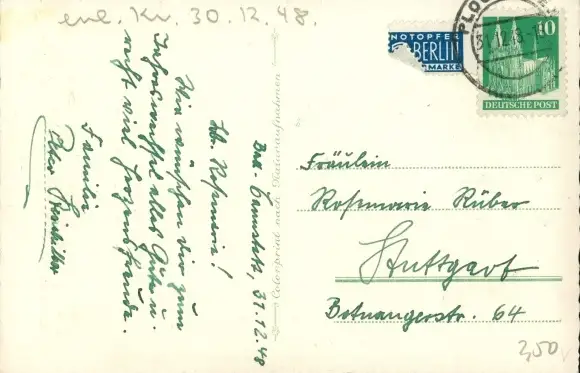 erl. Kr. 30.12.48.
Bad-Cannstatt, 31.12.48
Lb. Rosemarie!
Wir wünschen Dir zum
Jahreswechsel alles Gute u.
recht viel Herzensfreude.
Familie
Peter
Colorprint nach Naturaufnahmen
NOTOPFER
2 BERLIN
MARKE
PLOC
31.12.48
10
DEUTSCHE POST
Fräulein
Rosemarie Rüber
Stuttgart
Botnangerstr. 64
2,50